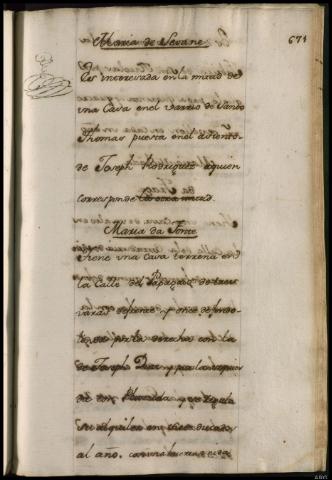 671
Maria de Seoane
Es interesada en la mitad de
una Casa en el varrio de Santo
Thomas puesta en el asiento
de Joseph Rodriguez aquien
corresponde la otra mitad.
Maria da Fonte
Tiene una Casa terrena en
la Calle del Papagaio de tres
varas de frente y once de fondo
por la derecha con la
de Joseph Diaz y por la izquierda
de
su alquiler en trece ducados
al año.